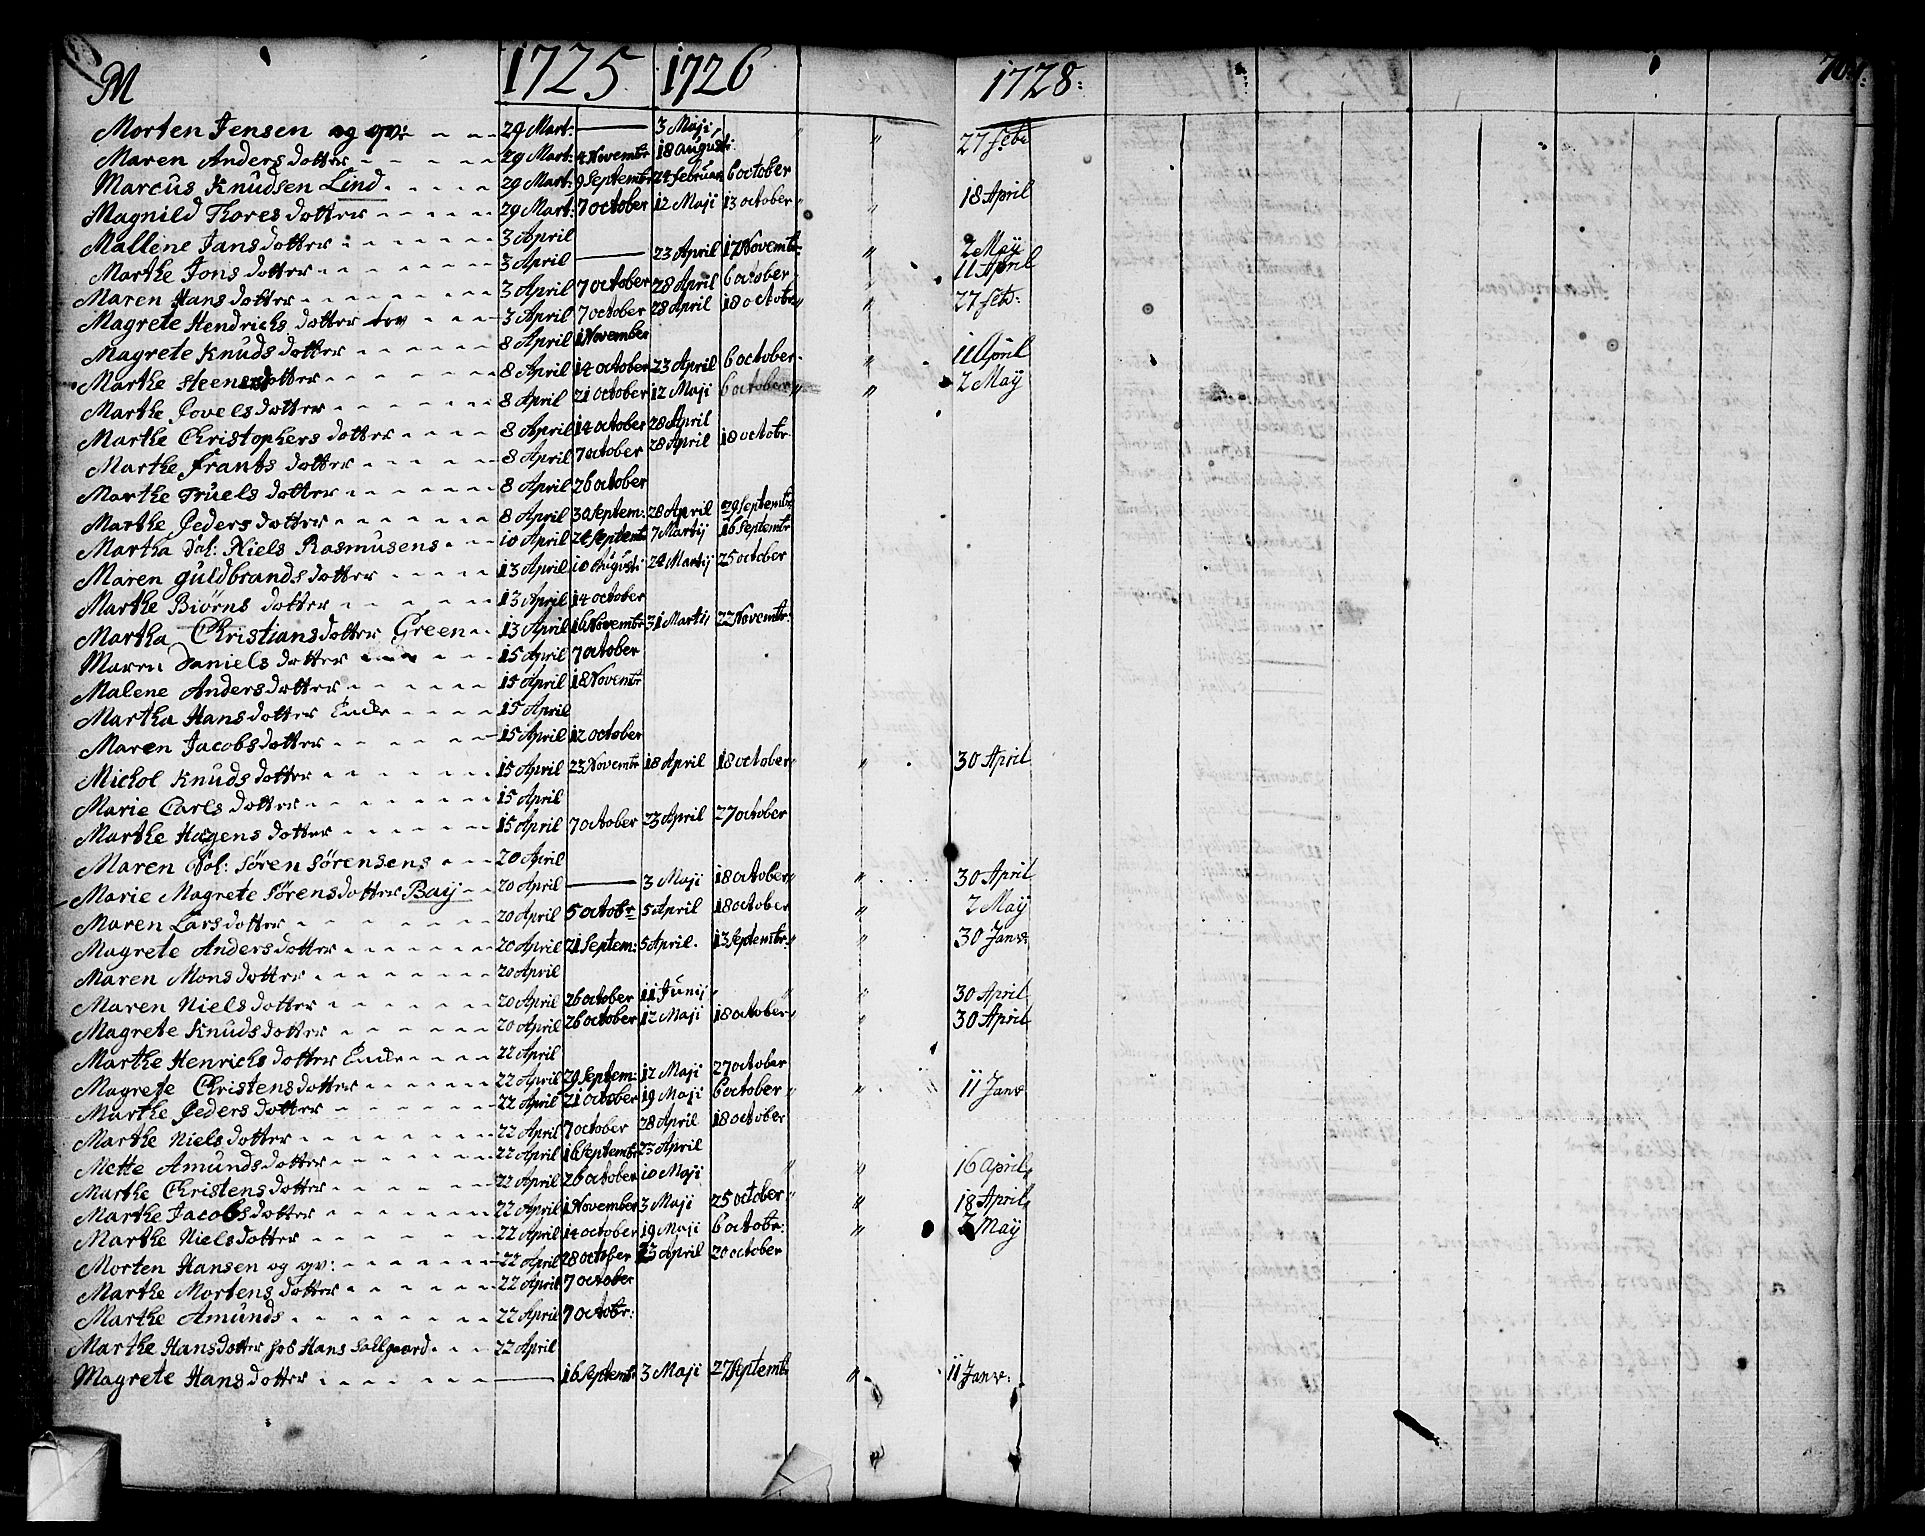 M 1725. 1726 1728: 
Morten Jensen og qv: 29 Mart: — 3 Maji, " 27 febr
Maren Anders dotter 29 Mart: 4 Novembr 18 augusti
Marcus Knudsen Lind 29 Mart: 9 Septembr 24 februar 6 october
Magnild Thores dotter 29 Mart: 7 october 12 Maji 13 october " " 18 April
Mallene Jans dotter 3 April
Marthe Jons dotter 3 April — 23 April 17 Novembr " 2 Maÿ
Maren Hans dotter 3 April 7 october 28 April 6 october " 11 April
Magrete Hendrichs dotter 3 April 7 october 28 April 18 octobr " " 27 feb:
Magrete Knuds dotter 8 April 1 November
Marthe Steens dotter 8 April 14 october 23 April 6 october " 11 April
Marthe Povels dotter 8 April 21 october 12 Maji 6 october " " 2 Maÿ
Marthe Christophers dotter 8 April 14 october 28 April
Marthe Frants dotter 8 April 7 october 28 April 18 octobr.
Marthe Truels dotter 8 April 26 october
Marthe Peders dotter 8 April 30 Septem: 28 April 29 Septembr
Martha Sal: Niels Rasmusens 10 April 24 Septembr 7 Martij 16 Septembr
Maren Guldbrands dotter 13 April 10 Augusti 24 Martij 25 october
Marthe Biørns dotter 13 April 14 october
Martha Christians dotter Green 13 April 16 Novembr 31 Martij 22 Novembr:
Maren Daniels dotter 15 April 7 october
Malene Anders dotter 15 April 18 Novembr
Martha Hans dotter Encke 15 April
Maren Jacobs dotter 15 April 12 october
Michol Knuds dotter 15 April 23 Novembr 18 April 18 october " " 30 April
Marie Carls dotter 15 April
Marthe Hagens dotter 15 April 7 october 23 April 27 october
Maren Sal: Søren Sørensens 20 April
Marie Magrete Sørens dotter Baÿ 20 April — 3 Maji 18 october " " 30 April
Maren Lars dotter 20 April 5 octobr 5 April 18 october " 2 Maÿ
Magrete Anders dotter 20 April 21 Septem: 5 April. 13 Septembr: " " 30 Janv:
Maren Mons dotter 20 April
Maren Niels dotter 20 April 26 october 11 Junij " " 30 April
Magrete Knuds dotter 20 April 26 october 12 Maji 18 october " " 30 April
Marthe Henrichs dotter Encke 22 April
Magrete Christens dotter 22 April 29 Septem: 12 Maji 27 october
Marthe Peders dotter 22 April 21 october 19 Maji 6 october " " 11 Janv
Marthe Niels dotter 22 April 7 october 28 April 18 october
Mette Amunds dotter 22 April 16 Septembr 23 April
Marthe Christens dotter 22 April 26 october 10 Maji " " 16 April
Marthe Jacobs dotter 22 April 1 November 3 Maji 25 october " " 18 April
Marthe Niels dotter 22 April 14 october 19 Maji 6 octobr: " 2 Maÿ
Morten Hansen og qv: 22 April 28 october 23 April 20 october
Marthe Mortens dotter 22 April 7 october
Marthe Amunds 22 April 7 octobr:
Marthe Hans dotter hos Hans Sollgaard 22 April
Magrete Hans dotter — 16 Septembr 3 Maji 27 Septembr " 11 Janv: